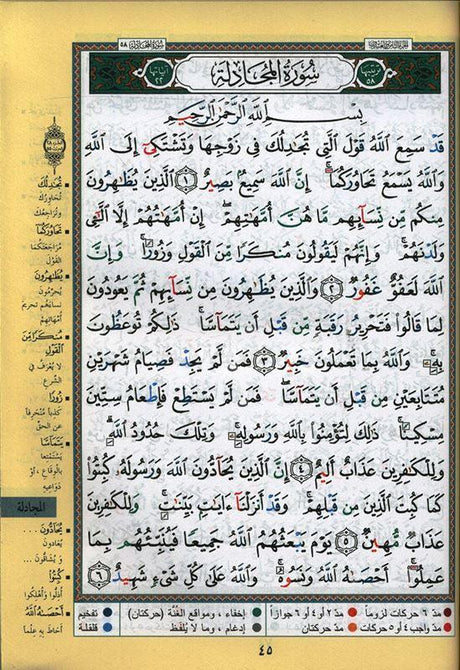 سورة المجادلة ٥٨
الجزء الثامن والعشرون
ترتيبها ٥٨
سُورَةُ المُجَادلَة
آياتها ٢٢
بِسْمِ ٱللَّهِ ٱلرَّحْمَٰنِ ٱلرَّحِيمِ
قَدْ سَمِعَ ٱللَّهُ قَوْلَ ٱلَّتِى تُجَٰدِلُكَ فِى زَوْجِهَا وَتَشْتَكِىٓ إِلَى ٱللَّهِ
وَٱللَّهُ يَسْمَعُ تَحَاوُرَكُمَآ ۚ إِنَّ ٱللَّهَ سَمِيعٌۢ بَصِيرٌ ١ ٱلَّذِينَ يُظَٰهِرُونَ
مِنكُم مِّن نِّسَآئِهِم مَّا هُنَّ أُمَّهَٰتِهِمْ ۖ إِنْ أُمَّهَٰتُهُمْ إِلَّا ٱلَّٰٓـِٔى
وَلَدْنَهُمْ ۚ وَإِنَّهُمْ لَيَقُولُونَ مُنكَرًا مِّنَ ٱلْقَوْلِ وَزُورًا ۚ وَإِنَّ
ٱللَّهَ لَعَفُوٌّ غَفُورٌ ٢ وَٱلَّذِينَ يُظَٰهِرُونَ مِن نِّسَآئِهِمْ ثُمَّ يَعُودُونَ
لِمَا قَالُوا۟ فَتَحْرِيرُ رَقَبَةٍ مِّن قَبْلِ أَن يَتَمَآسَّا ۚ ذَٰلِكُمْ تُوعَظُونَ
بِهِۦ ۚ وَٱللَّهُ بِمَا تَعْمَلُونَ خَبِيرٌ ٣ فَمَن لَّمْ يَجِدْ فَصِيَامُ شَهْرَيْنِ
مُتَتَابِعَيْنِ مِن قَبْلِ أَن يَتَمَآسَّا ۖ فَمَن لَّمْ يَسْتَطِعْ فَإِطْعَامُ سِتِّينَ
مِسْكِينًا ۚ ذَٰلِكَ لِتُؤْمِنُوا۟ بِٱللَّهِ وَرَسُولِهِۦ ۚ وَتِلْكَ حُدُودُ ٱللَّهِ ۗ
وَلِلْكَٰفِرِينَ عَذَابٌ أَلِيمٌ ٤ إِنَّ ٱلَّذِينَ يُحَآدُّونَ ٱللَّهَ وَرَسُولَهُۥ كُبِتُوا۟
كَمَا كُبِتَ ٱلَّذِينَ مِن قَبْلِهِمْ ۚ وَقَدْ أَنزَلْنَآ ءَايَٰتٍۭ بَيِّنَٰتٍ ۚ وَلِلْكَٰفِرِينَ
عَذَابٌ مُّهِينٌ ٥ يَوْمَ يَبْعَثُهُمُ ٱللَّهُ جَمِيعًا فَيُنَبِّئُهُم بِمَا
عَمِلُوٓا۟ ۚ أَحْصَىٰهُ ٱللَّهُ وَنَسُوهُ ۚ وَٱللَّهُ عَلَىٰ كُلِّ شَىْءٍ شَهِيدٌ ٦
تُجَٰدِلُكَ
تُحَاوِرُكَ
وَتُرَاجِعُكَ
تَحَاوُرَكُمَا
مُرَاجَعَتَكُمَا
القَوْلَ
يُظَٰهِرُونَ
يُحَرِّمُونَ
نساءَهم تحريمَ
أُمَّهَاتِهِمْ
مُنكَرًا مِنَ
القَوْلِ
لا يُعْرَفُ في
الشَّرعِ
زُورًا
كَذِبًا مُنْحَرِفًا
عن الحَقِّ
يَتَمَآسَّا
يَسْتَمْتِعَا
بالوِقَاعِ ، أو
دَوَاعِيهِ
المجادلة
يُحَآدُّونَ
يُعَادُونَ
و يُشَاقُّونَ
كُبِتُوا
أُذِلُّوا وَأُهْلِكُوا
أَحْصَىٰهُ اللَّهُ
أحَاطَ بِهِ عِلْمًا
مدّ ٦ حركات لزوماً
مدّ ٢ أو ٤ أو ٦ جوازاً
إخفاء ، ومواقع الغُنَّة (حركتان)
تفخيم
مدّ واجب ٤ أو ٥ حركات
مدّ حركتان
إدغام ، وما لا يُلفَظ
قلقلة
٤٥